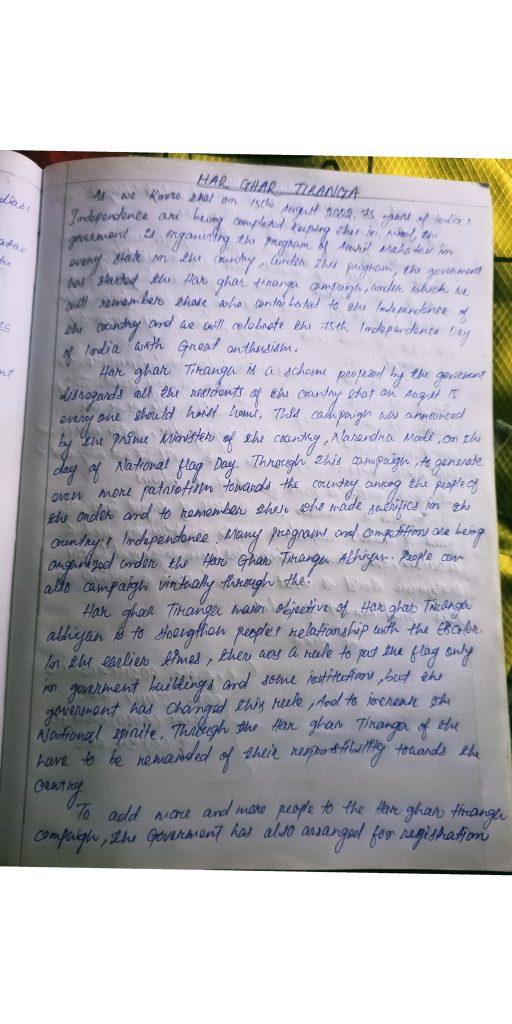 HAR GHAR TIRANGA
As we Know that on 15th August 2022, 75 years of India's
Independence are being completed keeping this in mind, the
government is organising the program of Amrit mahotav in
every state in the country, under this program, the government
has started the Har ghar tiranga campaign, under which we
will remember those who contributed to the Independence of
the country and we will celebrate the 75th Independence Day
of India with Great enthusism.
Har ghar Tiranga is a scheme proposed by the goverment
disregards all the residents of the country that on August 15
every one should hoist home, This campaign was announced
by the prime Minister of the country, Narendra Modi, on the
day of National flag Day. Through this campaign, to generate
even more patriotism towards the country among the people of
the order and to remember those who made sacrifics in the
country's Independence. Many programs and compettions are being
organized under the Har Ghar Tiranga Abhiyan. People can
also campaign virtually through the.
Har ghar Tiranga main objective of Har ghar Tiranga
abhiyan is to strengthen people's relationship with the
In the earlier times, there was a rule to put the flag only
in goverment buildings and some institutions, but the
goverment has changed this rule, And to increase the
National spirite. Through the Har ghar Tiranga of the
have to be remainded of their responstibility towards the
country
To add more and more people to the Har ghar tiranga
campaign, the Goverment has also arranged for registration